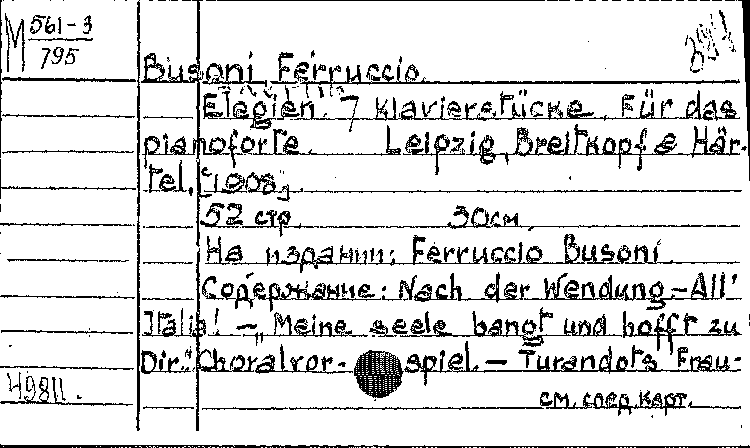 М 561-3
795
Busoni, Ferruccio.
Elegien. 7 Klavierstücke. Für das
pianoforte. Leipzig, Breitkopf & Här-
tel, [1908].
52 стр. 30см.
На издании: Ferruccio Busoni.
Содержание: Nach der Wendung. – All'
Italia! – „Meine seele bangt und hofft zu
Dir." Choralvor- spiel. – Turandots Frau-
49811. см. след. карт.